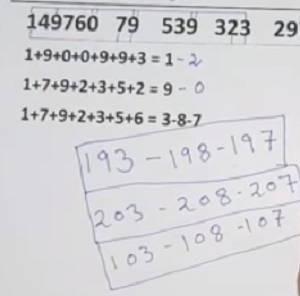 149760 79 539 323 29
1+9+0+0+9+9+3 = 1 - 2
1+7+9+2+3+5+2 = 9 - 0
1+7+9+2+3+5+6 = 3-8-7
193 - 198 - 197
203 - 208 - 207
103 - 108 - 107